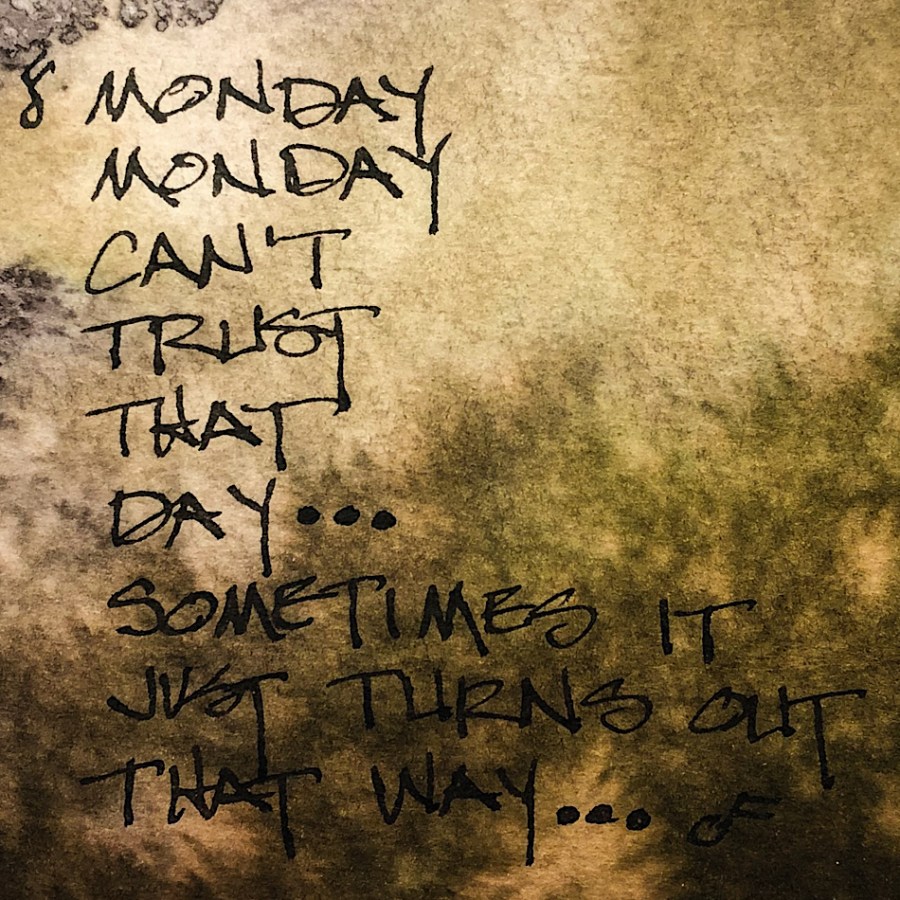 MONDAY
MONDAY
CAN'T
TRUST
THAT
DAY...
SOMETIMES IT
JUST TURNS OUT
THAT WAY...